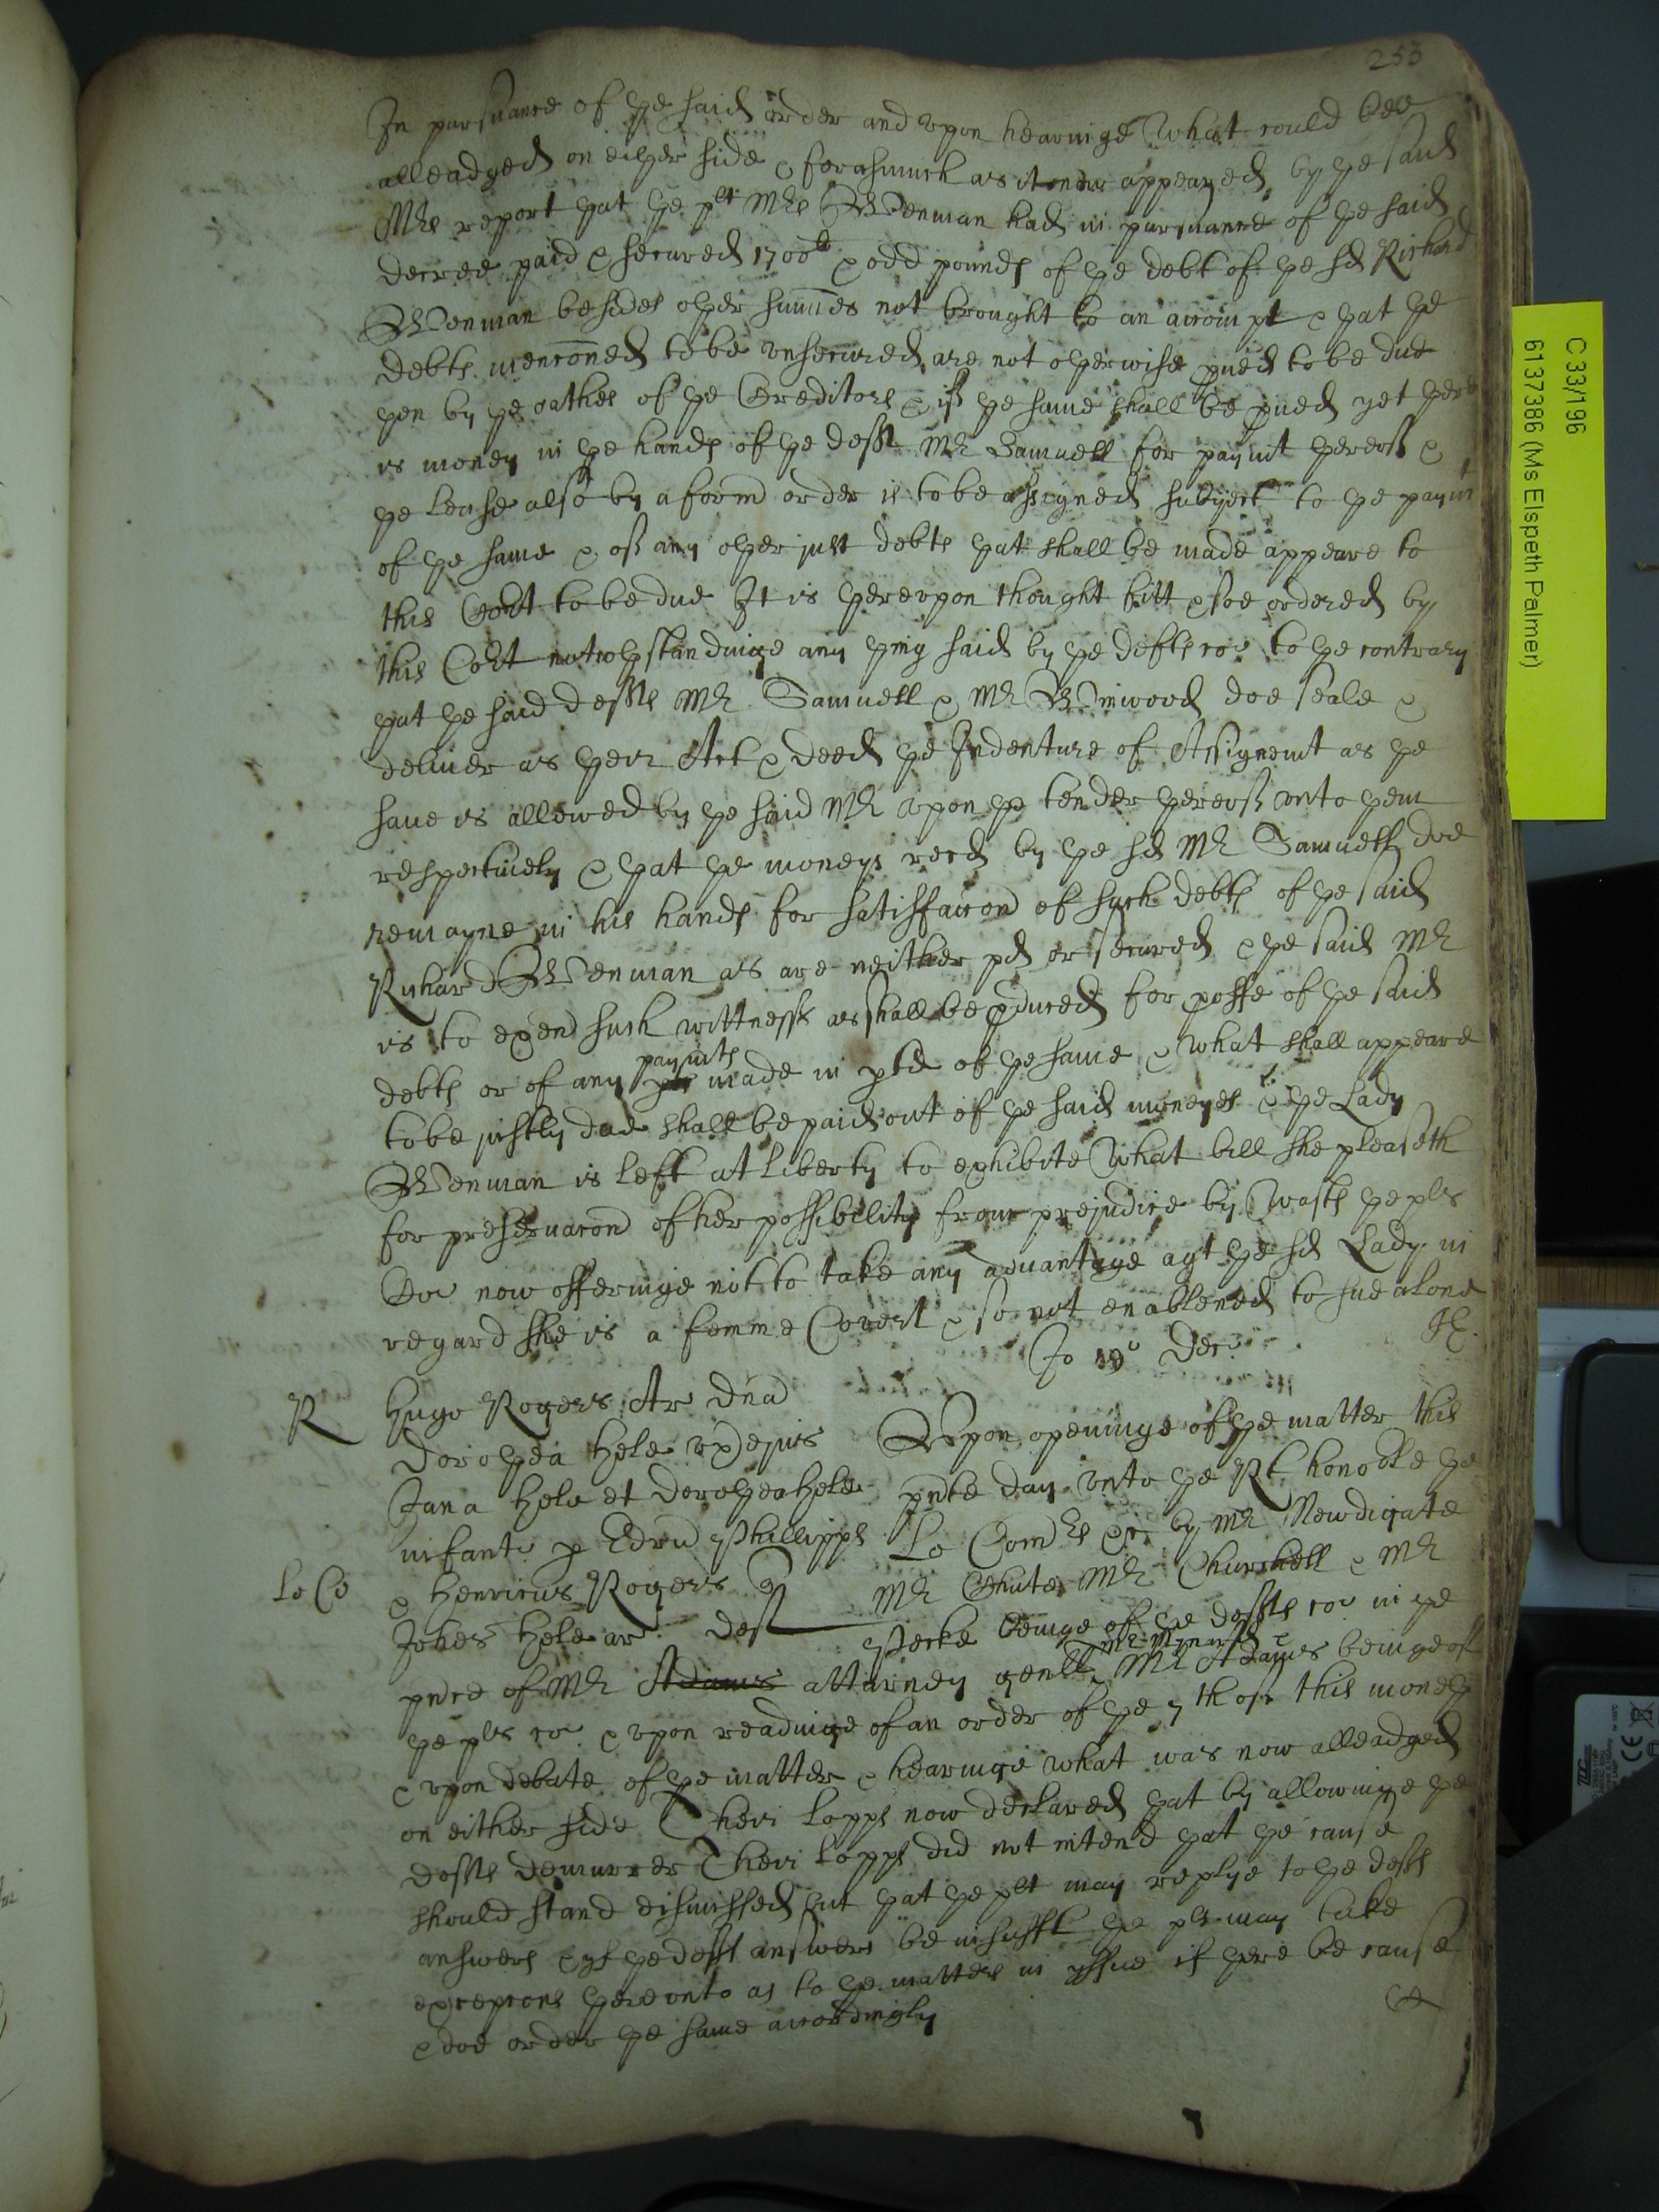 253
In pursuance of ye said order and vpon hearinge What could bee
alleadged on eiyer side & forasmuch as it now appeared by ye said
Mrs report yat ye plt Mrs Wenman had in pursuance of ye said
decree paid & secured 1700li & odd pounds of ye debt of ye sd Richard
Wenman besides oyer summes not brought to an accompt & yat ye
debts menconed to be vnsecured are not oyerwise pued to be due
yen by ye oathes of ye Creditors & if ye same shall be pued yet yere
is money in ye hands of ye deft Mr Samuell for paymt yereof &
ye Lease also by a form order is to be assigned subject to ye paymt
of ye same & of any oyer just debts yat shall be made appeare to
this Cort to be due It is yerevpon thought fitt & soe ordered by
this Cort notwthstandinge any ying said by ye defts co: to ye contrary
yat ye said defts Mr Samuell & Mr Winwood doe seale &
deliuer as yeir Act & deed ye Indenture of Assignemt as ye
same is allowed by ye said Mr vpon ye tender yereof vnto yem
respectiuely & yat ye moneys recd by ye sd Mr Samuell doe
remayne in his hands for satisfaccon of such debts of ye said
Richard Wenman as are neither pd or secured & ye said Mr
is to exend such wittnesses as shall be pduced for poffe of ye said
debts or of any paymts made in pte of ye same & What shall appeare
to be justly due shall be paid out of ye said moneyes & ye Lady
Wenman is left at liberty to exhibite What bill she pleaseth
for preseruacon of her possibility from prejudice by Wasts ye plts
Co: now offeringe not to take any aduantage agt ye sd Lady in
regard she is a femme Covert & so not enabled to sue alone
Jo 19o Dec:
R
Hugo Rogers Ar Dna
Doroyea Hele vx ejus
Jana Hele et Doroyea Hele
infants p Edrd Phillipps
& Henricus Rogers q
Johes Hele ar deft
Lo Co
Vpon openinge of ye matter this
pnte day vnto ye Rt honoble ye
Lo Comrs &c by Mr Newdigate
Mr Chute Mr Churchill & Mr
Pecke beinge of ye defts co: in ye
pnce of Mr Adams attorney genll Mr Mynard & Mr Adames beinge of
ye plts co: & vpon readinge of an order of ye 7th of this moneth
& vpon debate of ye matter & hearinge what was now alleadged
on either side Their Lopps now declared yat by allowinge ye
defts demurrer Their Lopps did not intend yat ye cause
should stand dismissed but yat ye plt may replye to ye defts
answers & if ye deft answers be insufft ye plt may take
excepcons yerevnto as to ye matters in yssue if yere be cause
& doe order ye same accordingly
C 33/196
6137386 (Ms Elspeth Palmer)